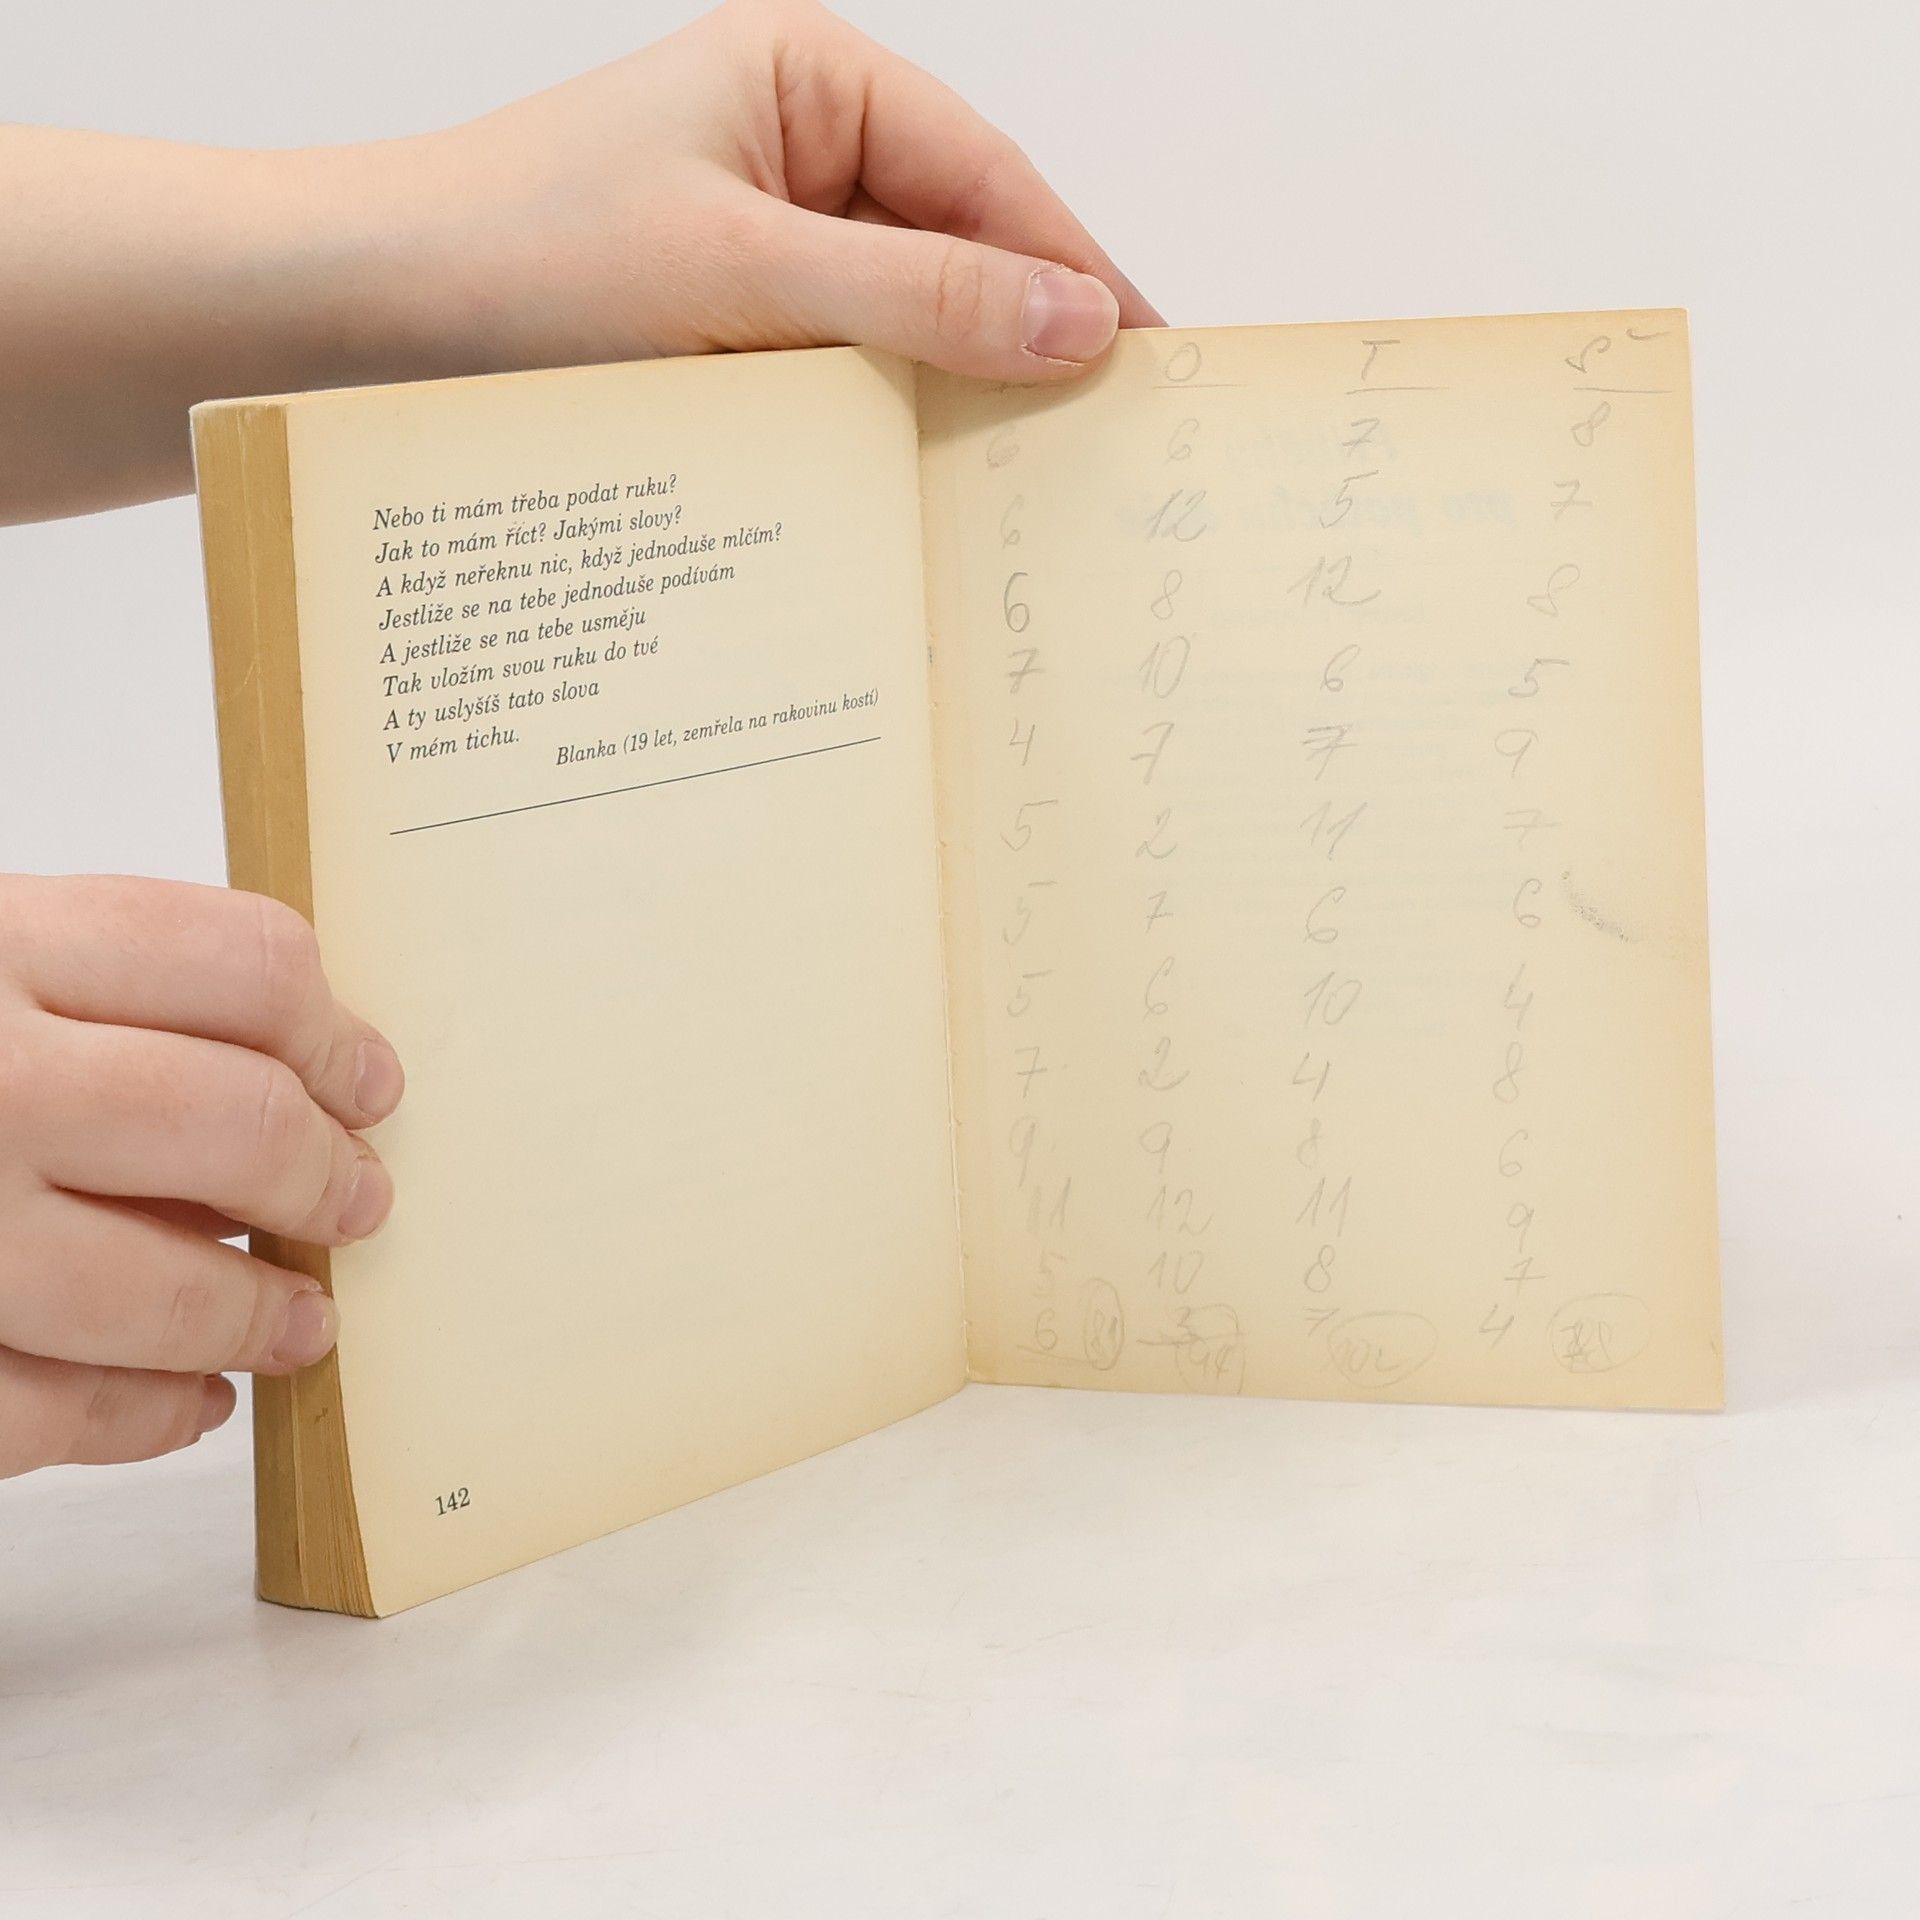 Nebo ti mám třeba podat ruku?
Jak to mám říct? Jakými slovy?
A když neřeknu nic, když jednoduše mlčím?
Jestliže se na tebe jednoduše podívám
A jestliže se na tebe usměju
Tak vložím svou ruku do tvé
A ty uslyšíš tato slova
V mém tichu.
Blanka (19 let, zemřela na rakovinu kostí)
142
O T Š
6 6 7 8
6 12 5 7
6 8 12 8
7 10 6 5
4 7 7 9
5 2 11 7
5 7 6 6
5 6 10 4
7 2 4 8
9 9 8 6
11 12 11 9
5 10 8 7
6 81 3 94 7 102 4